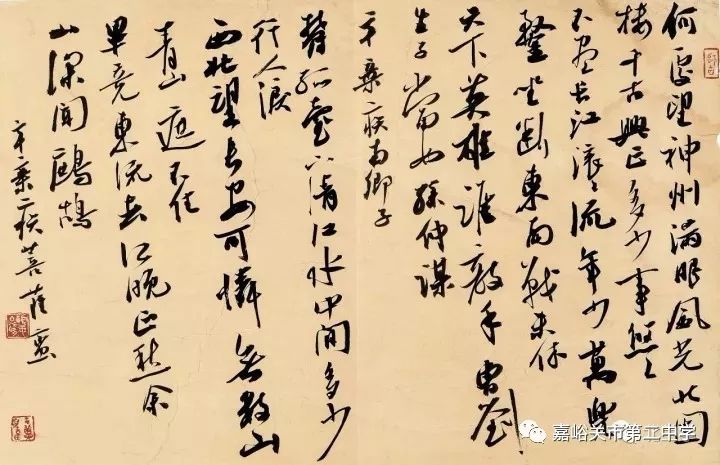 何處望神州滿眼風光北固
樓千古興亡多少事悠〻
不盡長江滾〻流年少萬兜
鍪坐斷東南戰未休
天下英雄誰敵手曹劉
生子當如孫仲謀
辛棄疾南鄉子
鬱孤臺下清江水中間多少
行人淚
西北望長安可憐無數山
青山遮不住
畢竟東流去江晚正愁余
山深聞鷓鴣
辛棄疾菩薩蠻
嘉峪关市第二中学